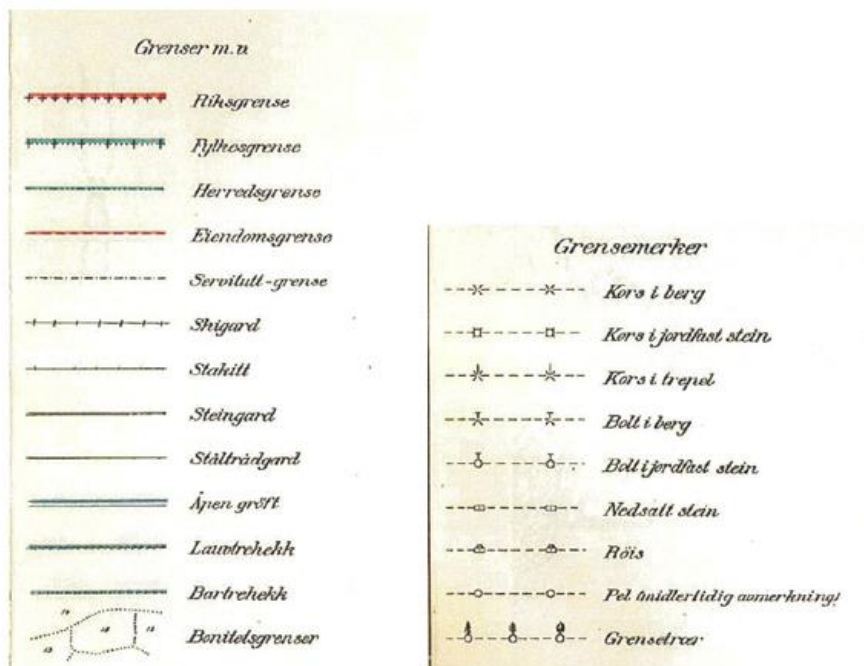 Grenser m.v
Riksgrense
Fylkesgrense
Herredsgrense
Eiendomsgrense
Servitutt-grense
Skigard
Stakitt
Steingard
Ståltrådgard
Åpen gröft
Lauvtrehekk
Bartrehekk
Bonitetsgrenser
Grensemerker
Kors i berg
Kors i jordfast stein
Kors i trepel
Bolt i berg
Bolt i jordfast stein
Nedsatt stein
Röis
Pel (midlertidig avmerkning)
Grensetrær